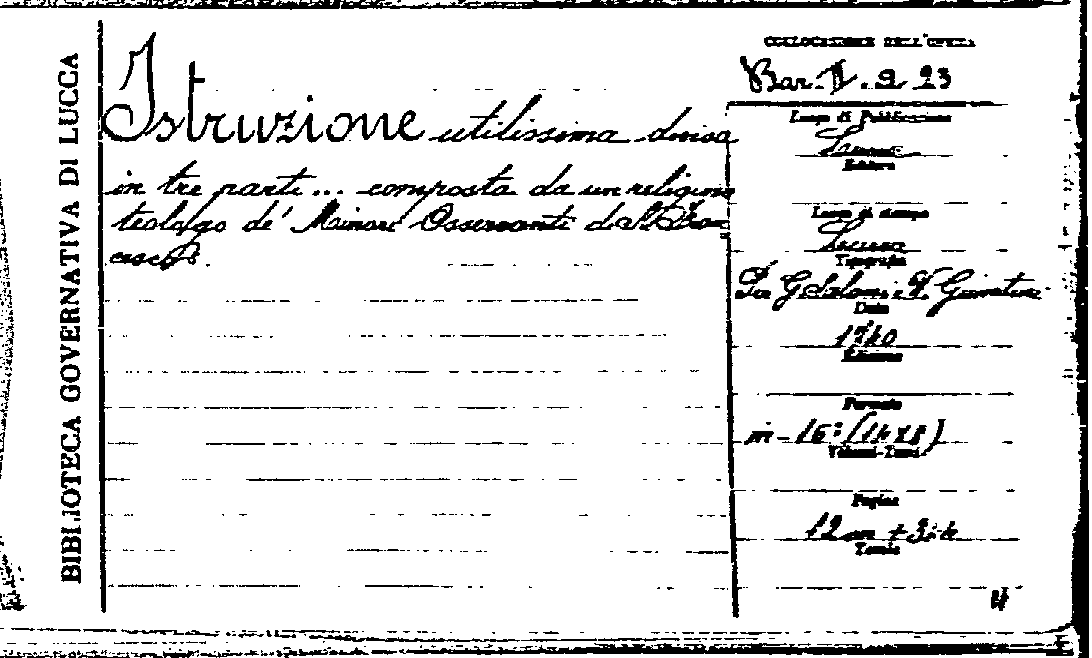 BIBLIOTECA GOVERNATIVA DI LUCCA
Istruzione utilissima divisa
in tre parti... composta da un religioso
teologo de' Minori Osservanti di S. Fran
cesco.
COLLOCAZIONE DELL'OPERA
Bar. 9 23
Luogo di Pubblicazione
Lucca
Editore
Luogo di stampa
Lucca
Tipografia
Per G. Salani e V. Giuntini
Data
1740
Edizione
Formato
in-16° (14x8)
Volumi-Tomi
Pagine
12
Tavole